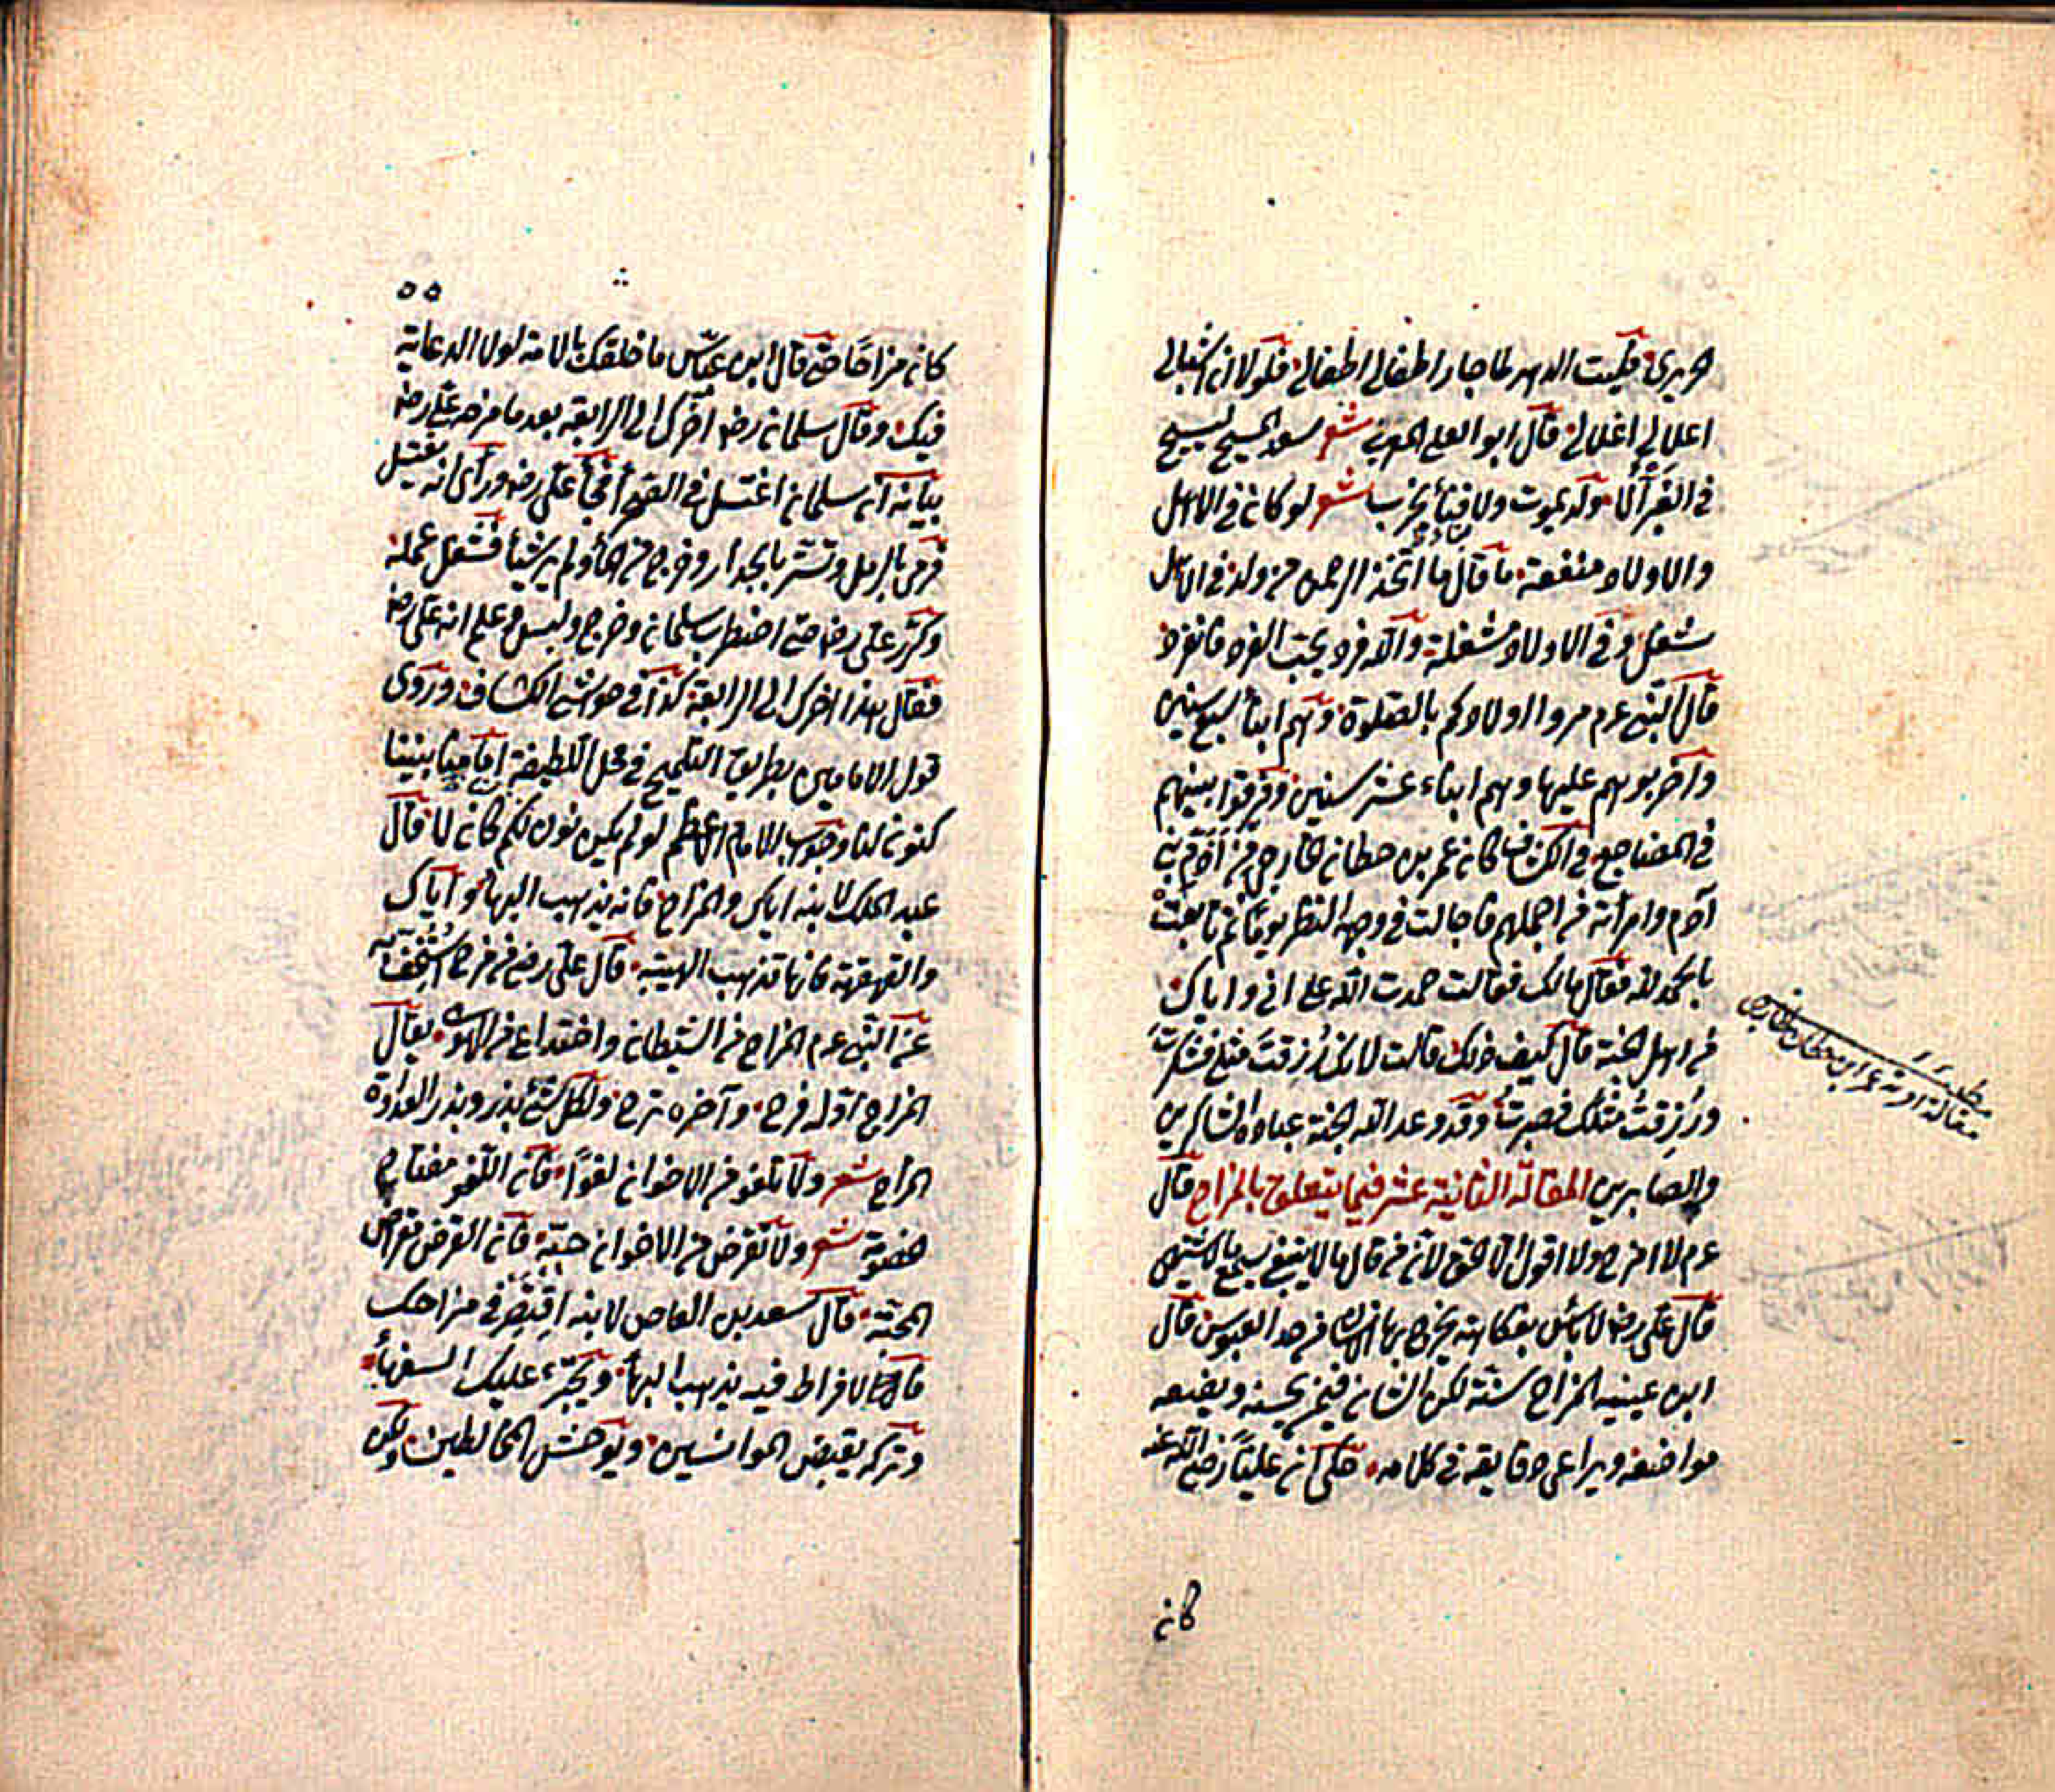 الحريري فليت الدهر لما جار اطفالي اطفالي فلولا ان اشبالي
اغلالي اغلالي قال ابو العلى المعري شعر المسيح يسيح
في ولد يموت ولا فناء يخرب شعر لو كان في الاهل
والاولاد منفعة ما قال ما اتخذ الرحمن من ولد في الاهل
شغل وفي الاولاد مشغلة والله فرد يحب الفرد فانفرد
قال النبي عم مروا اولادكم بالصلوة وهم ابناء سبع سنين
واضربوهم عليها وهم ابناء عشر سنين وفرقوا بينهم
في المضاجع في الكشاف كان عمر بن حطان الخارجي من ادم بني
آدم وامرأته من اجملهم فاجالت في وجهه النظر يوما ثم تابعت
بالحمد لله فقال مالك فقالت حمدت الله على اني واياك
من اهل الجنة قال كيف ذلك قالت لانك رزقت مثلي فشكرت
ورزقت مثلك فصبرت وقد وعد الله الجنة عباده الشاكرين
والصابرين المقالة الثانية عشر فيما يتعلق بالمزاح قال
عم لا امزح ولا اقول الا الحق لان من قال ما لا ينبغي سمع ما لا يشتهي
قال علي رضه لا بأس بفكاهة يخرج بها الانسان من حد العبوس قال
ابن عيينه المزاح سنة لكن الشان فيمن يحسنه ويضعه
مواضعه ويراعي دقايقه في كلامه حكي ان عليا رضي الله عنه
كان
مطلب
مقالة امرأة عمر ابن حطان خارجي
٥٥
كان مزاحا حتى قال ابن عباس ما خلقك بالامة لولا الدعابة
فيك وقال سلمان رضه اخرك الى الرابعة بعد ما مزحه علي رضه
بيانه ان سلمان اغتسل في فجأ علي رضه ورأى انه يغتسل
فرمى بالرمل وتستر بالجدار وخرج من الماء ولم ير شيئا فشغل عمله
وكرر علي رضه حتى اضطرب سلمان وخرج ولبس وعلم انه علي رضه
فقال هذا اخرك الى الرابعة كذا في حواشي الكشاف وروى
قول الامامين بطريق التلميح في محل اللطيفة بيننا
كنون لنا وجواب الامام الاعظم لو لم يكن نون لكم كان لا قال
عبد الملك لابنه اياك والمزاح فانه يذهب البهاء واياك
والقهقهة فانها تذهب الهيبة قال علي رضه من مزح استخف به
عن النبي عم المزاح من الشيطان واختداع من الهوى يقال
المزاح اوله فرح وآخره ترح ولكل شيء بذر وبذر العداوة
المزاح شعر ولا تلغو من الاخوان لغوا فان اللغو مفتاح
الخصومة شعر ولا تقرض من الاخوان حبة فان القرض مقراض
المحبة قال سعد بن العاص لابنه اقتصر في مزاحك
فان الافراط فيه يذهب البهاء ويجرئ عليك السفهاء
وتركه يقبض الموانسين ويوحش المخالطين ولكن